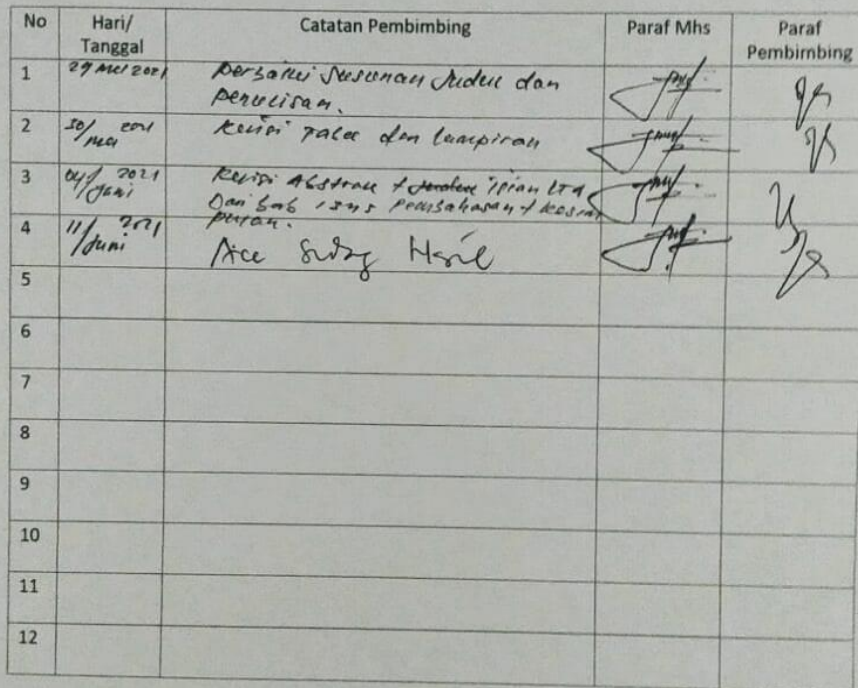 No Hari/ Tanggal Catatan Pembimbing Paraf Mhs Paraf Pembimbing
1 29 Mei 2021 Perbaiki Susunan Judul dan
penulisan.
2 30/Mei 2021 Revisi Tabel dan Lampiran
3 04/Juni 2021 Revisi Abstrak + isian LTA
Dari bab 1 s/d 5 Pembahasan + kesim
pulan.
4 11/Juni 2021 Acc Sidang Hasil
5
6
7
8
9
10
11
12